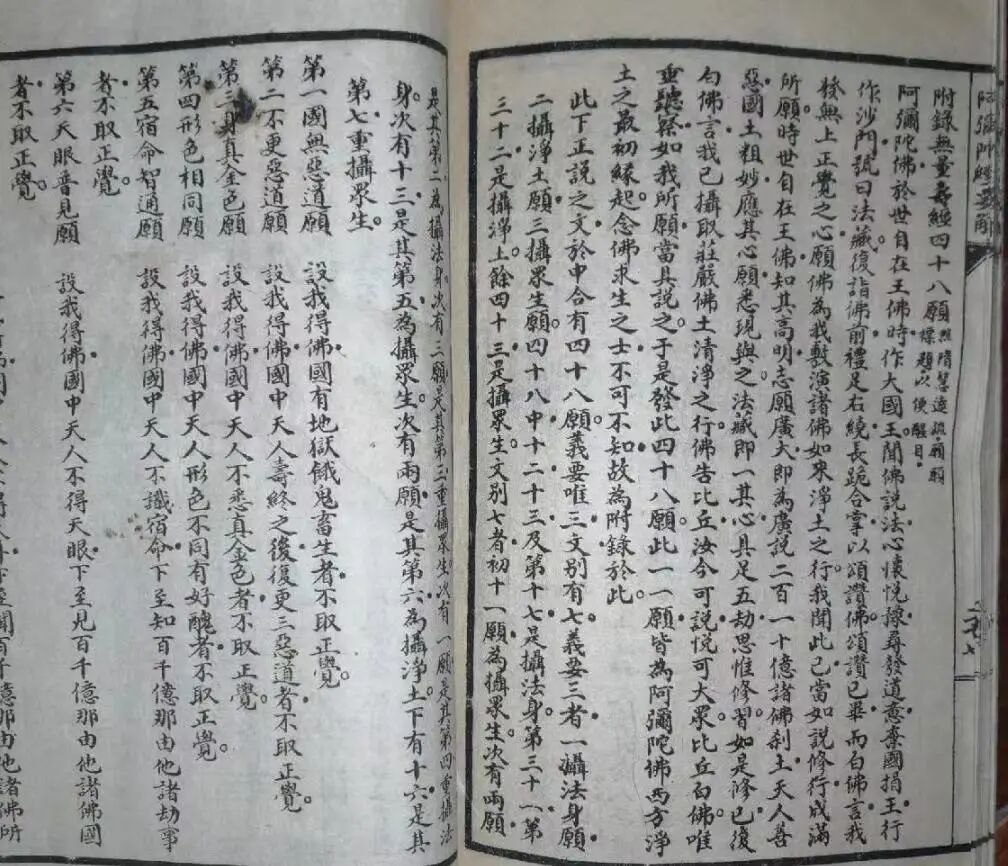 阿彌陀經要解
附錄無量壽經四十八願 照隋慧遠疏願願
標題以便醒目。
阿彌陀佛於世自在王佛時作大國王聞佛說法心懷悅豫尋發道意棄國捐王行
作沙門號曰法藏復詣佛前禮足右繞長跪合掌以頌讚佛頌讚已畢而白佛言我
發無上正覺之心願佛為我敷演諸佛如來淨土之行我聞此已當如說修行成滿
所願時世自在王佛知其高明志願廣大即為廣說二百一十億諸佛剎土天人善
惡國土粗妙應其心願悉現與之法藏即一其心具足五劫思惟修習如是修已復
白佛言我已攝取莊嚴佛土清淨之行佛告比丘汝今可說悅可大眾比丘白佛唯
垂聽察如我所願當具說之于是發此四十八願此一一願皆為阿彌陀佛西方淨
土之最初緣起念佛求生之士不可不知故為附錄於此
此下正說之文於中合有四十八願義要唯三文別有七義要三者一攝法身願
二攝淨土願三攝眾生願四十八中十二十三及第十七是攝法身第三十一第
三十二是攝淨土餘四十三是攝眾生文別七者初十一願為攝眾生次有兩願
是其第二為攝法身次有三願是其第三重攝眾生次有一願是其第四重攝法
身次有十三是其第五為攝眾生次有兩願是其第六為攝淨土下有十六是其
第七重攝眾生
第一國無惡道願 設我得佛國有地獄餓鬼畜生者不取正覺。
第二不更惡道願 設我得佛國中天人壽終之後復更三惡道者不取正覺。
第三身真金色願 設我得佛國中天人不悉真金色者不取正覺。
第四形色相同願 設我得佛國中天人形色不同有好醜者不取正覺。
第五宿命智通願 設我得佛國中天人不識宿命下至知百千億那由他諸劫事
者不取正覺。
第六天眼普見願 設我得佛國中天人不得天眼下至見百千億那由他諸佛國
者不取正覺